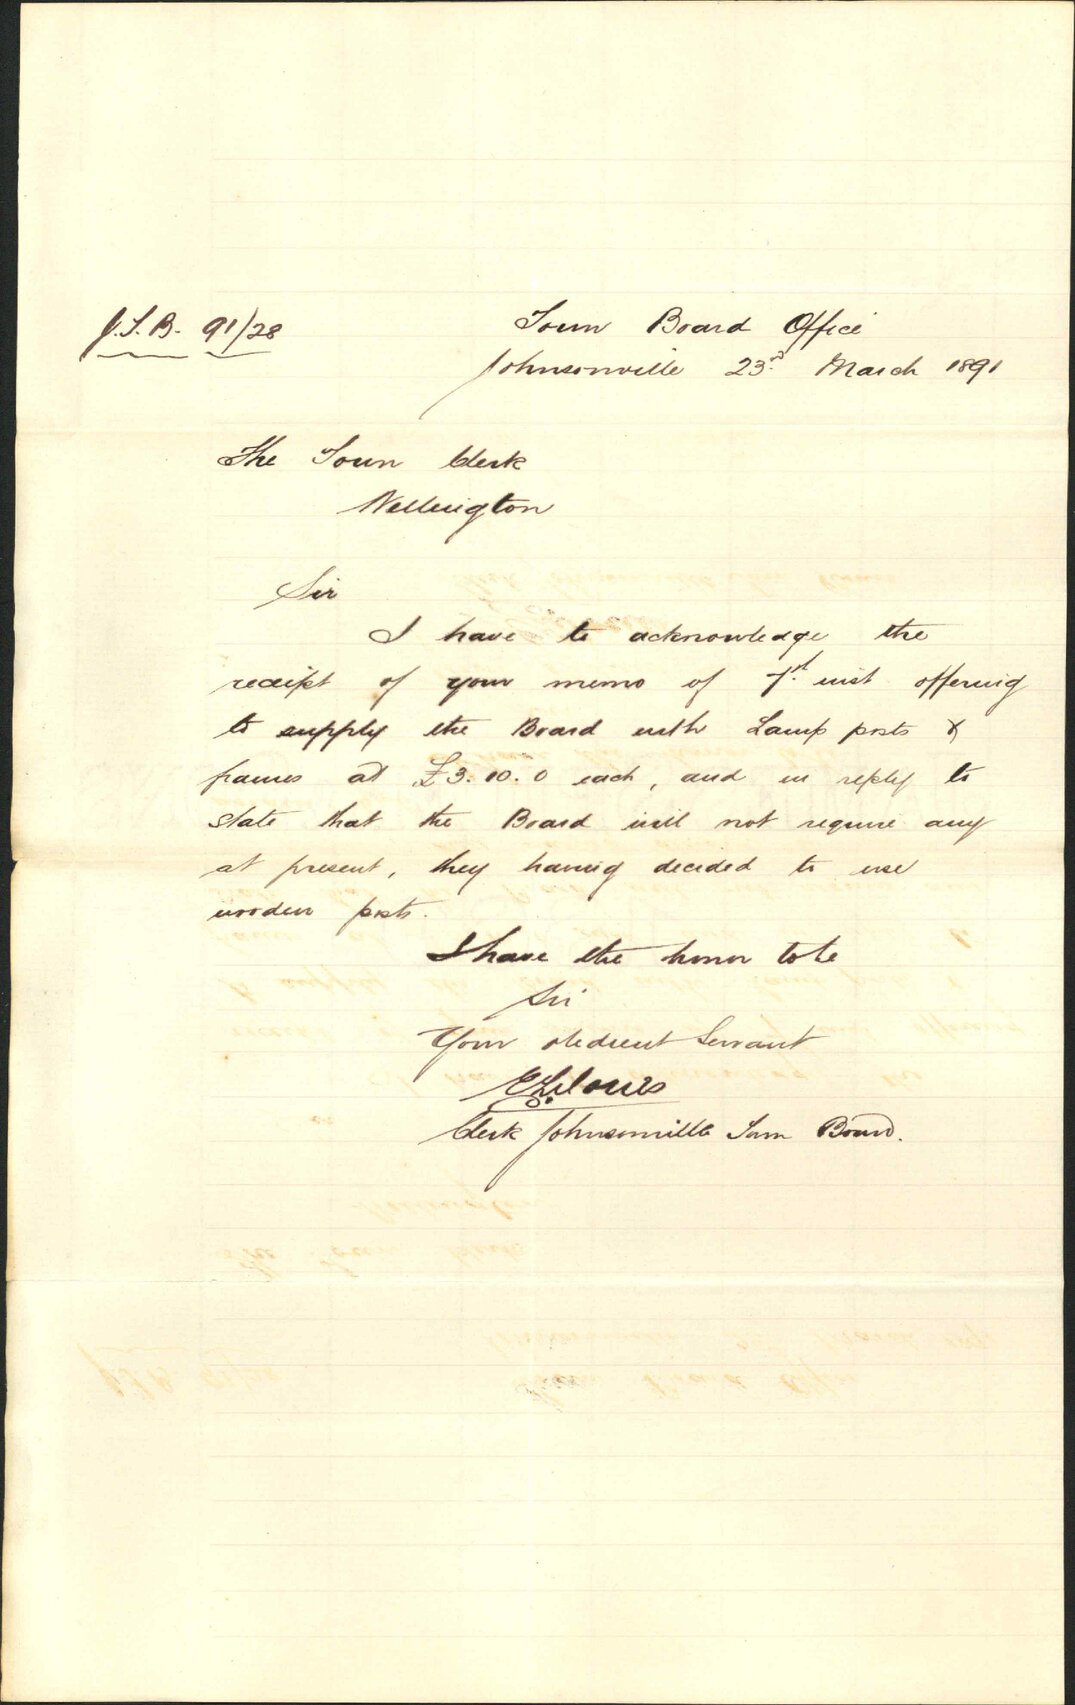 J.T.B. 91/28
Town Board Office
Johnsonville 23rd March 1891
The Town Clerk
Wellington
Sir
I have to acknowledge the
receipt of your memo of inst offering
to supply the Board with Lamp posts &
frames at £3.10.0 each, and in reply to
state that the Board will not require any
at present, they having decided to use
wooden posts.
I have the honor to be
Sir
Your obedient Servant
Clerk Johnsonville Town Board.